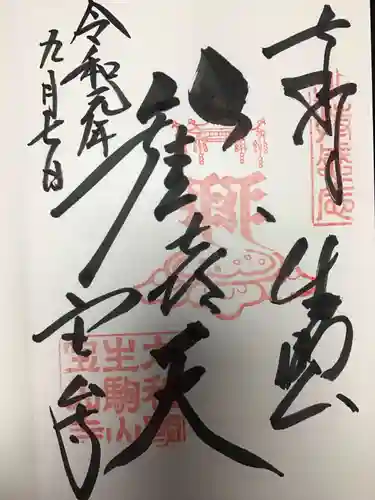 奉拝
生駒山
歓喜天
宝山寺
令和元年
九月七日
大和國
生駒山
宝山寺